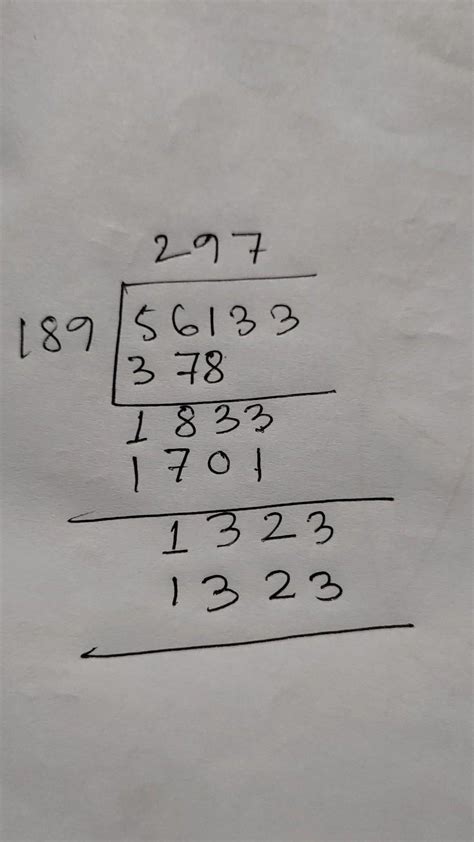 297
189 56133
378
1833
1701
1323
1323